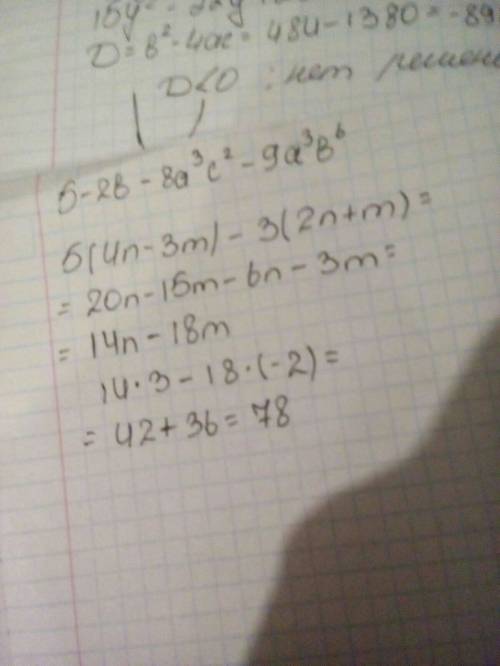 15y² - 22y
D = b² - 4ac = 484 - 1380 = -89
D<0 : нет решен
5-2b - 8a³c² - 9a³b⁶
5(4n-3m) - 3(2n+m) =
= 20n-15m-6n-3m=
= 14n-18m
14·3-18·(-2)=
= 42+36=78